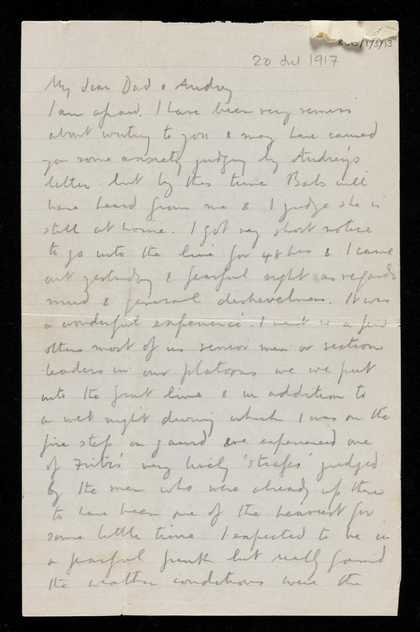 20 Jul 1917
My dear Dad & Audrey
I am afraid I have been very remiss
about writing to you & may have caused
you some anxiety judging by Audrey's
letter but by this time Babs will
have heard from me & I judge she is
still at home. I got very short notice
to go into the line for 48 hrs & I came
out yesterday a fearful sight as regards
mud & general dishevelment. It was
a wonderful experience. I went in a few
others most of us senior men or section
leaders in our platoons we were put
into the front line & in addition to
a wet night during which I was on the
fire step on guard we experienced one
of Fritz's very lively 'strafes' judged
by the men who were already up there
to have been one of the heaviest for
some little time. I expected to be in
a fearful funk but really found
the weather conditions were the